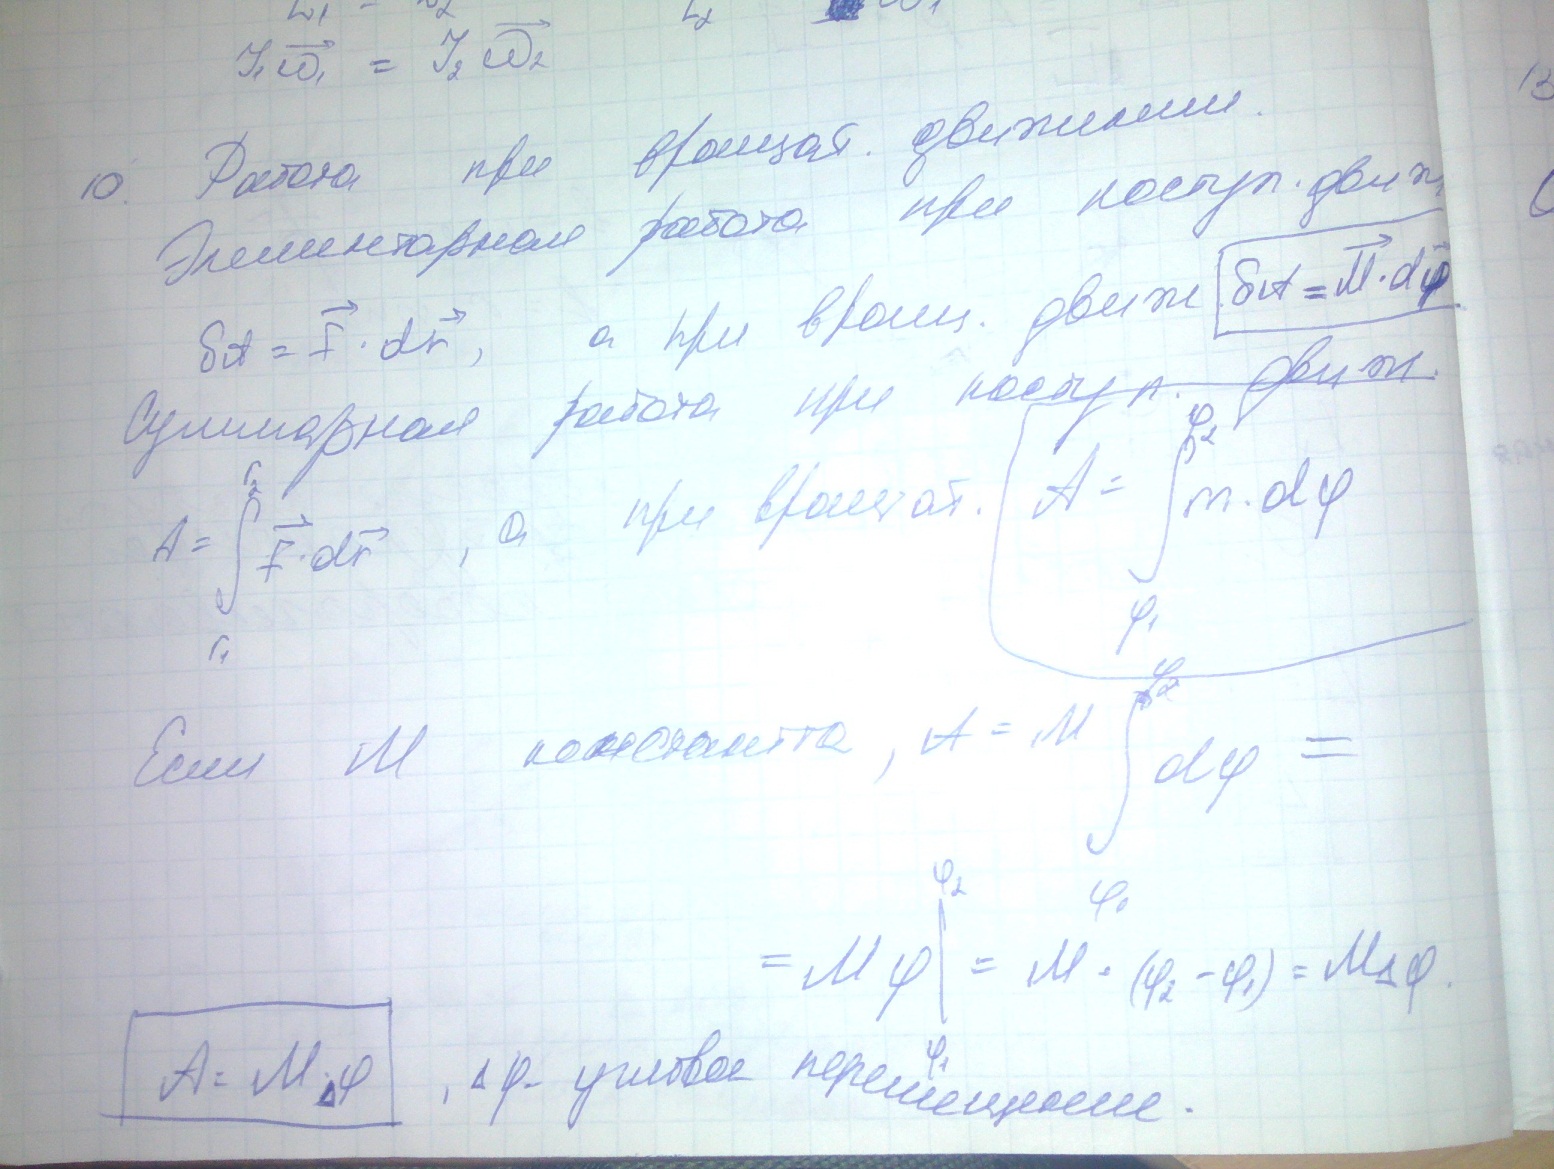 J₁ω⃗₁ = J₂ω⃗₂
10. Работа при вращат. движении.
Элементарная работа при поступ. движ
δA = F⃗ · dr⃗, а при вращ. движ δA = M⃗ · dφ⃗
Суммарная работа при поступ. движ.
A = ∫_{r₁}^{r₂} F⃗ · dr⃗, а при вращат. A = ∫_{φ₁}^{φ₂} m · dφ
Если M константа, A = M ∫_{φ₁}^{φ₂} dφ =
= Mφ |_{φ₁}^{φ₂} = M · (φ₂ - φ₁) = MΔφ.
A = M·Δφ, Δφ - угловое перемещение.